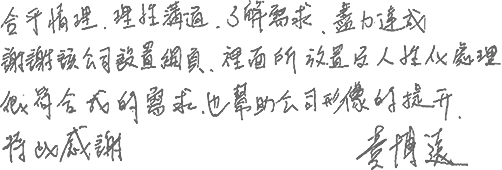 合乎情理、理性溝通、了解需求、盡力達成
謝謝該公司設置網頁、裡面所放置及人性化處理
很符合我的需求、也幫助公司形像的提升、
特以感謝 黃博遠